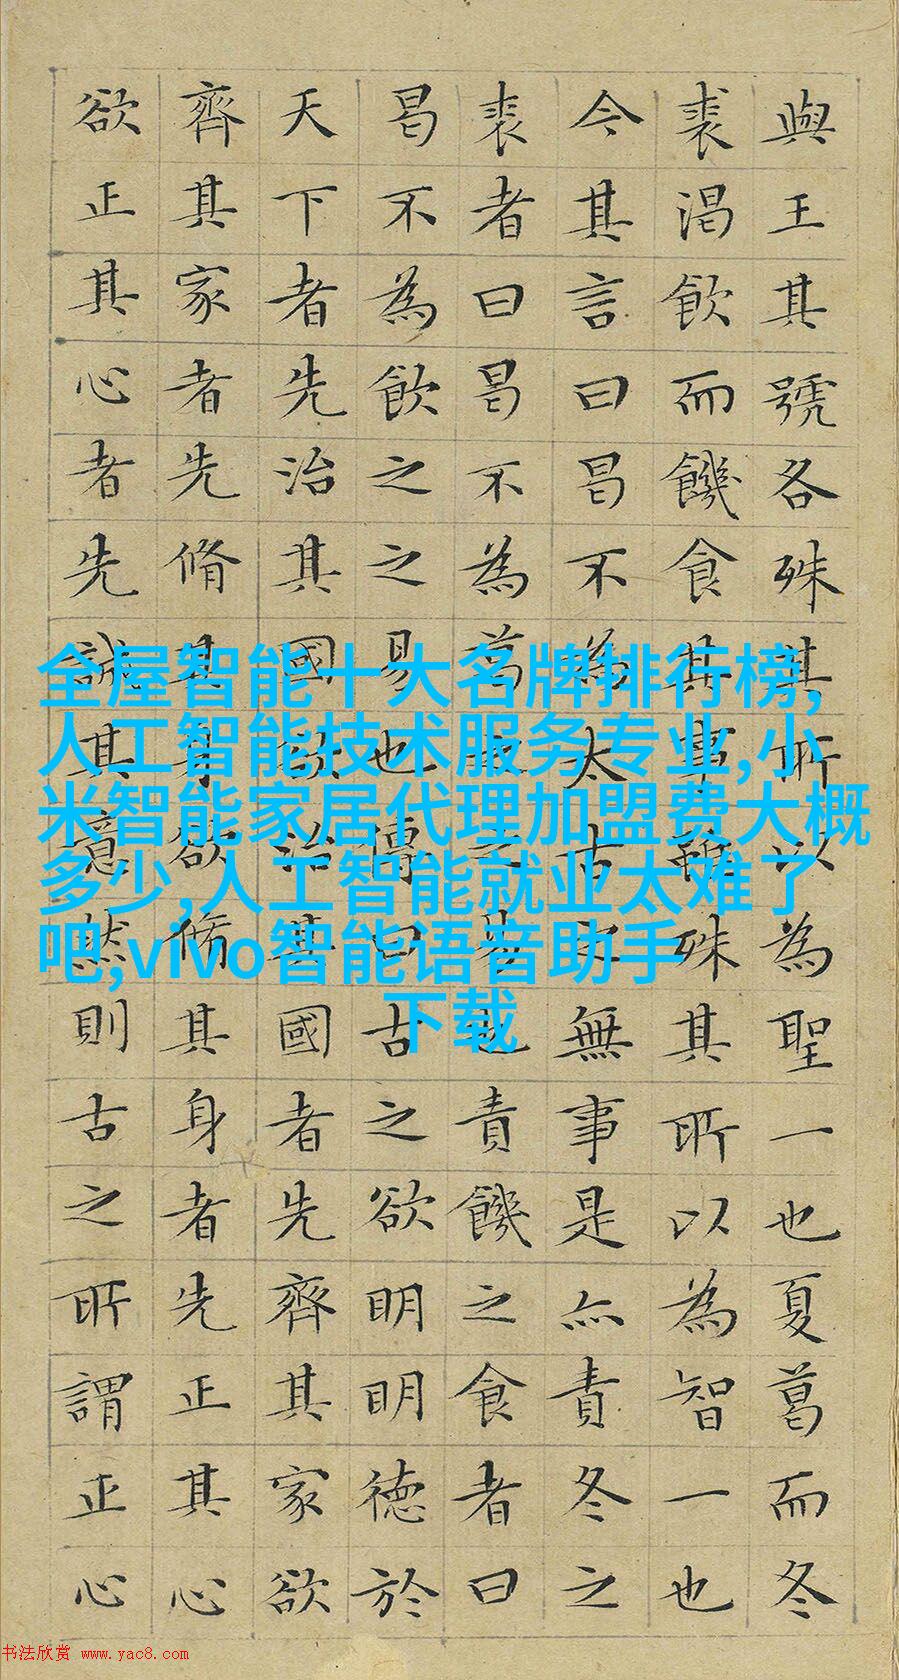 與王其號各殊其所以為聖一也夏葛而冬
裘渴飲而饑食其事雖殊其所以為智一也
今其言曰曷不為太古之無事是亦責冬之
裘者曰曷不為葛之之易也責饑之食者曰
曷不為飲之之易也傳曰古之欲明明德於
天下者先治其國欲治其國者先齊其家欲
齊其家者先脩其身欲脩其身者先正其心
欲正其心者先誠其意然則古之所謂正心
全屋智能十大名牌排行榜,
人工智能技术服务专业,小
米智能家居代理加盟费大概
多少,人工智能就业太难了
吧,vivo智能语音助手
下载
书法欣赏 www.yac8.com